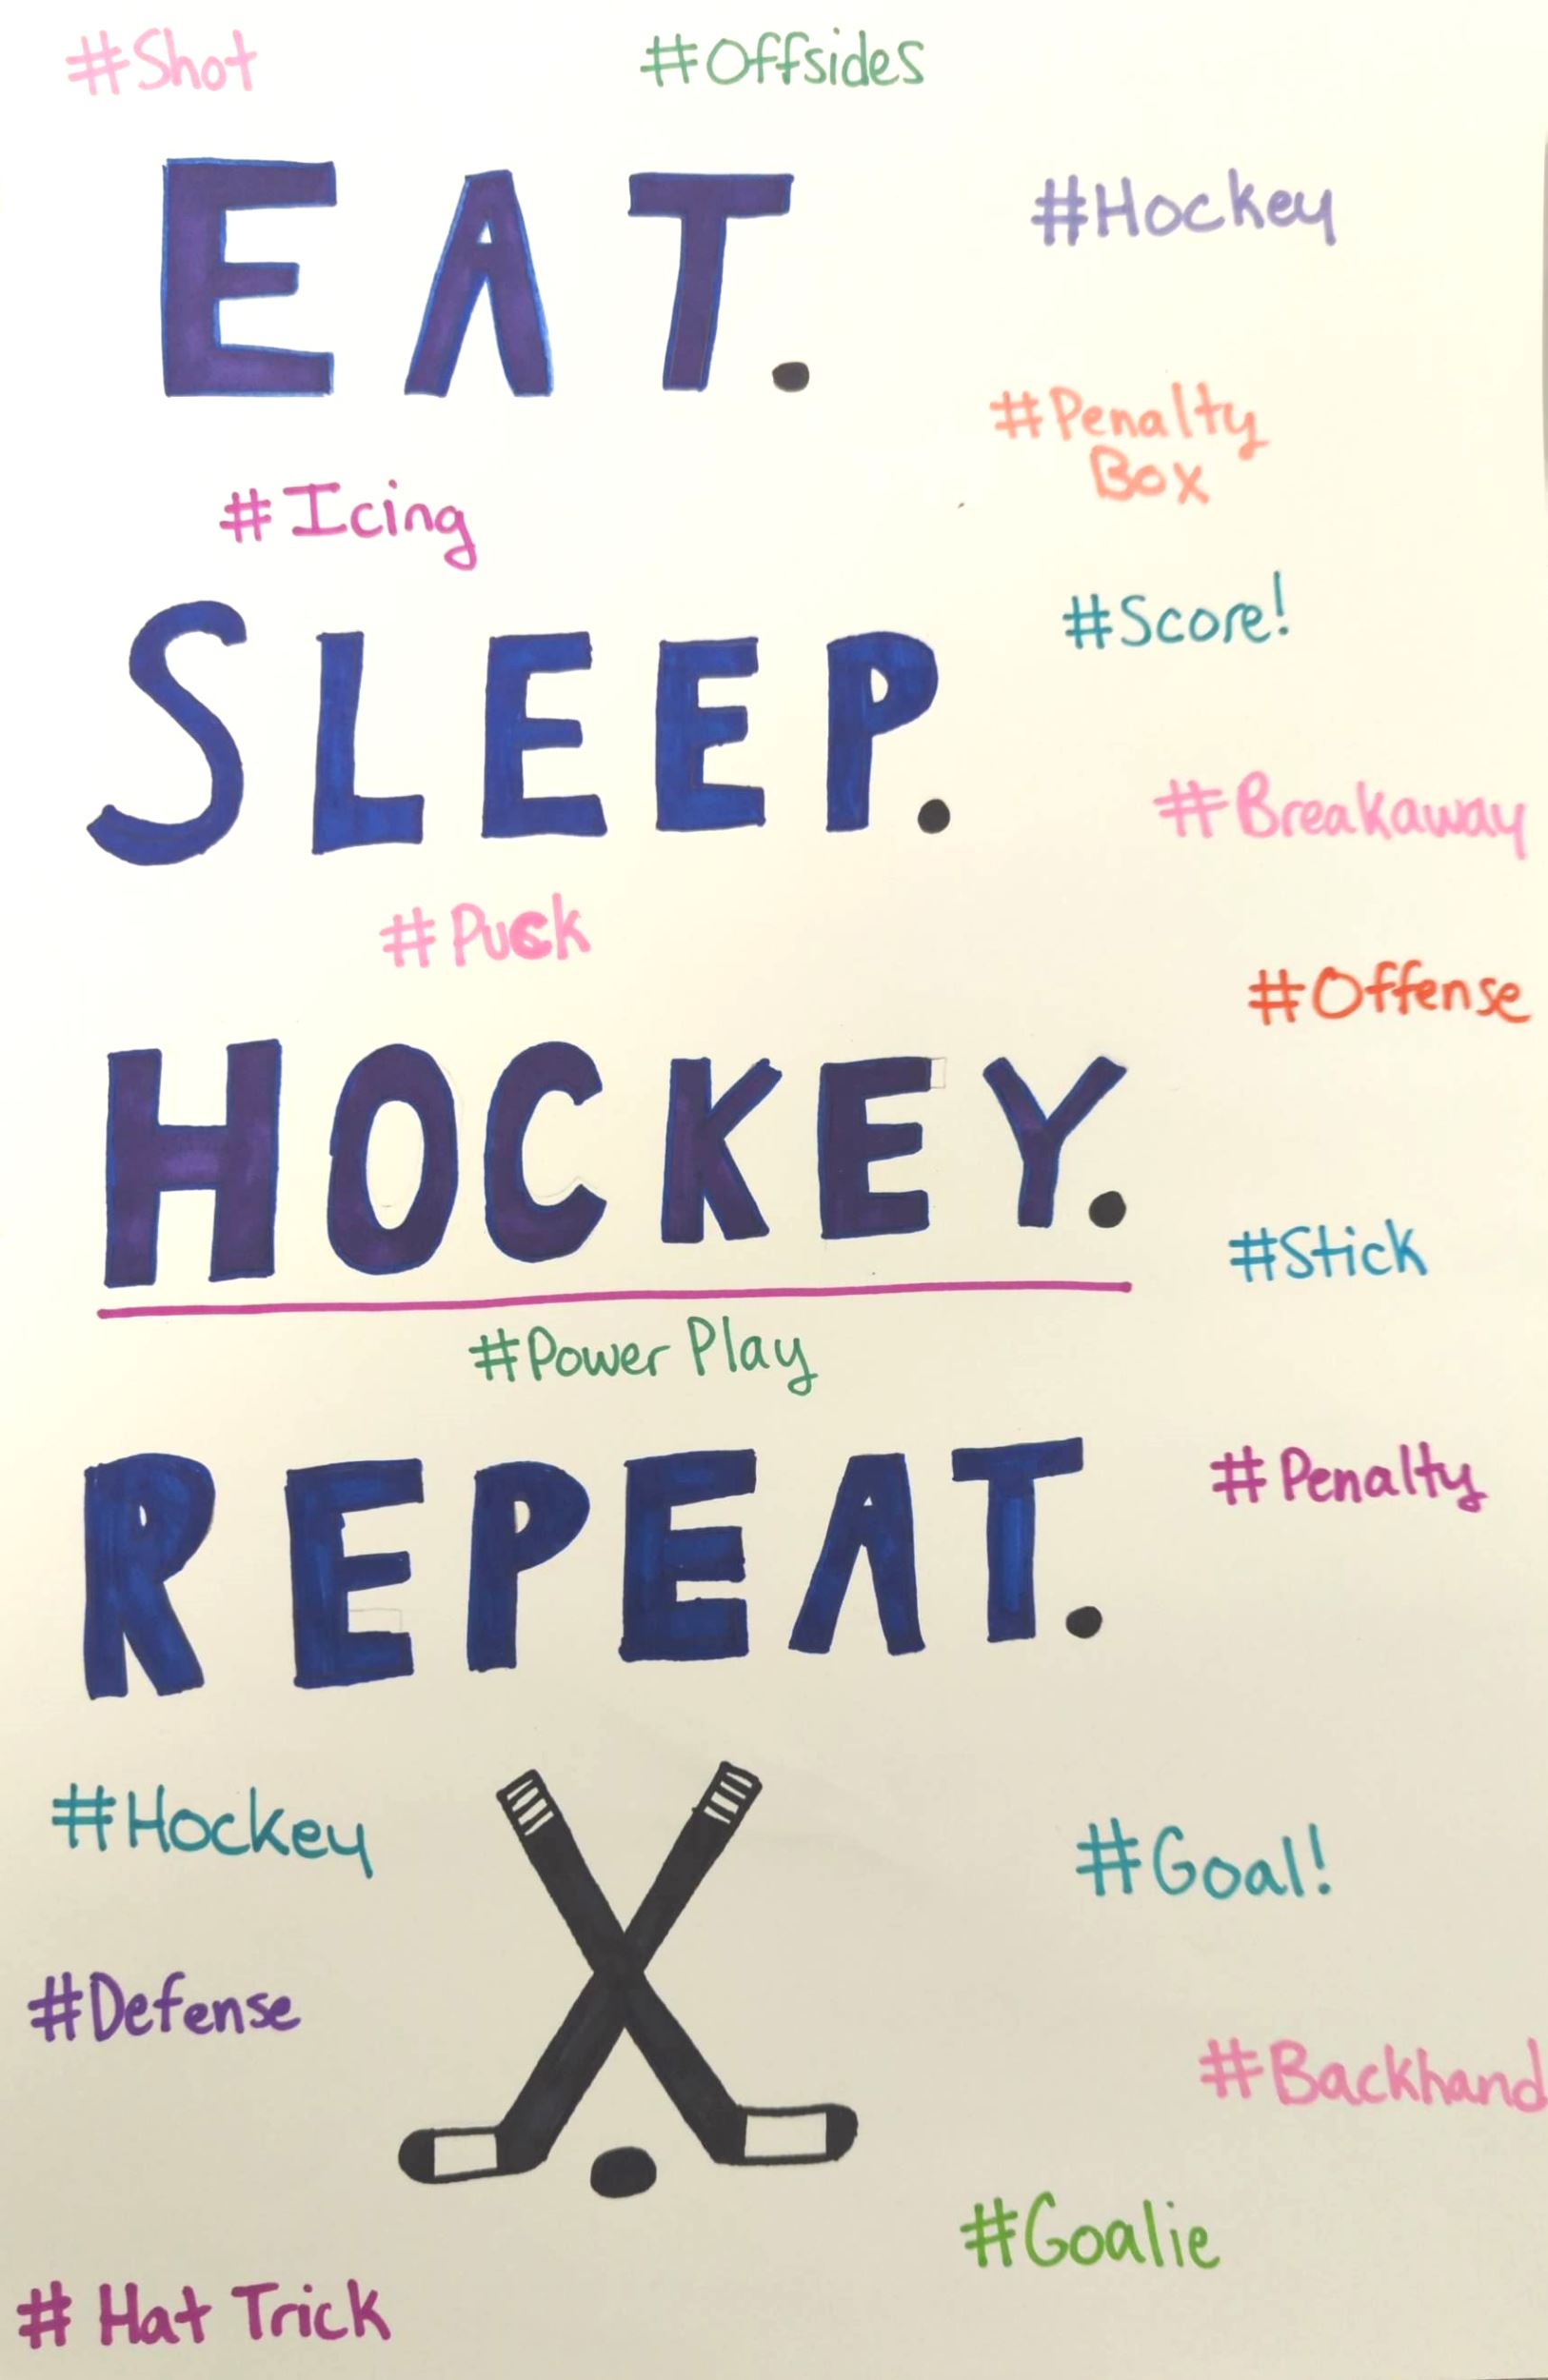 #Shot
#Offsides
EAT.
#Hockey
#Penalty
Box
#Icing
#Score!
SLEEP.
#Breakaway
#Puck
#Offense
HOCKEY.
#Stick
#Power Play
REPEAT.
#Penalty
#Hockey
#Goal!
#Defense
#Backhand
#Goalie
# Hat Trick